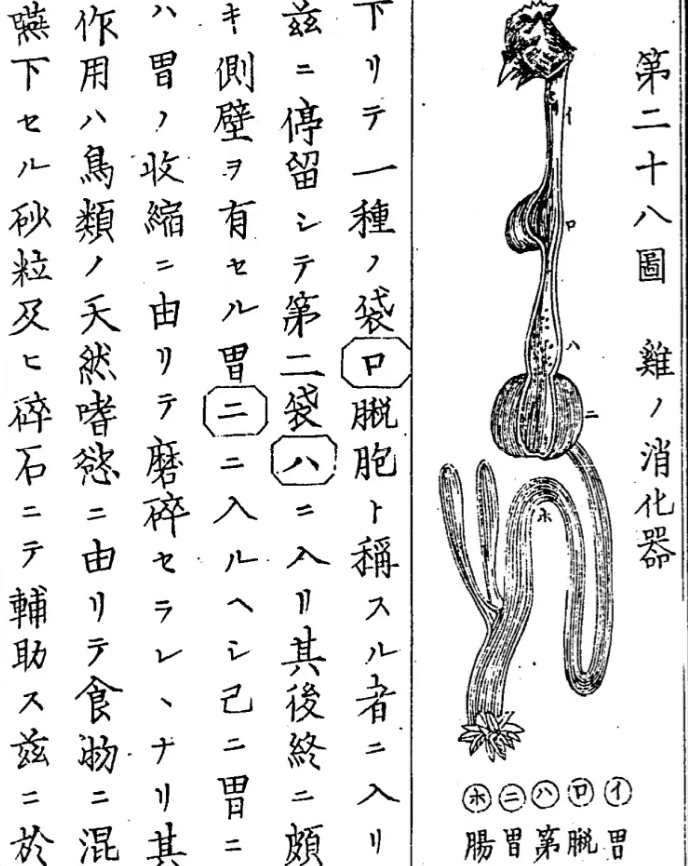 第二十八圖 雞ノ消化器
イ
ロ
ハ
ニ
ホ
イ胃
ロ脱
ハ第
ニ胃
ホ腸
下リテ一種ノ袋ロ脱胞ト稱スル者ニ入リ
茲ニ停留シテ第二袋ハニ入リ其後終ニ頗
キ側壁ヲ有セル胃ニニ入ルヘシ己ニ胃ニ
ハ胃ノ收縮ニ由リテ磨碎セラレヽナリ其
作用ハ鳥類ノ天然嗜慾ニ由リテ食物ニ混
嚥下セル砂粒及ヒ碎石ニテ輔助ス茲ニ於